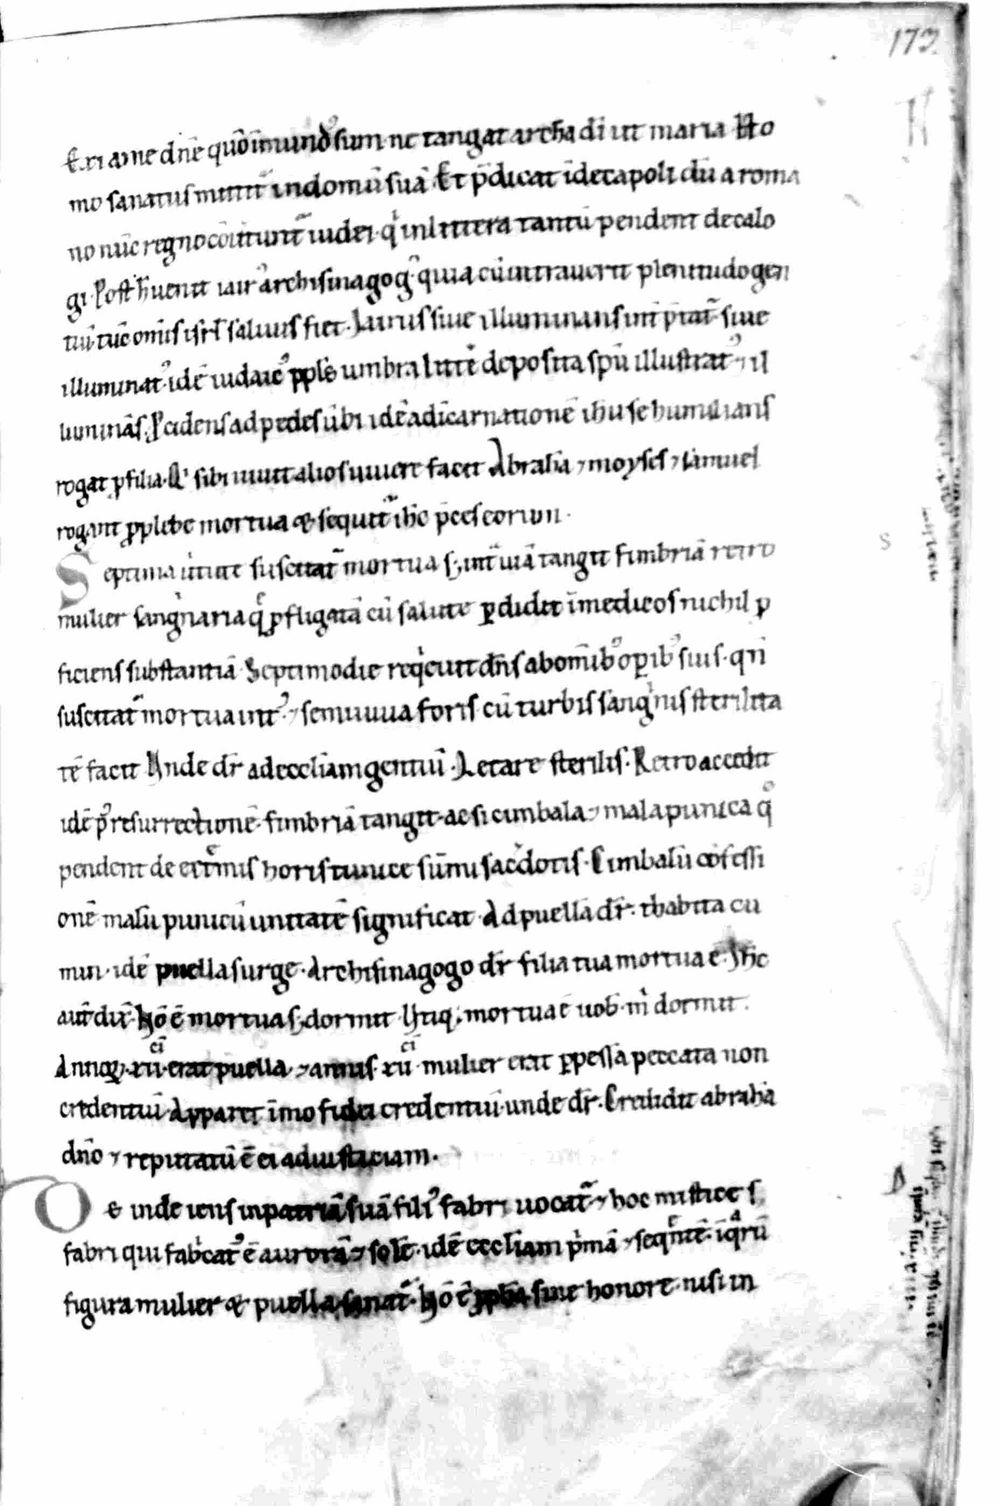 173
Exi a me dn̄e quō īmund⁹ sum. ne tangat archā dī ut maria. Ho
mo sanatus mittit᷑ in domū suā. Et p̄dicat ī decapoli dū a roma
no nūc regno cōūtunt᷑ iudei. qⁱ in littera tantū pendent de calo
gi. Post h̄ uenit iair⁹ archisinagog⁹. quia cū intrauerit plenitudo gen
tiū. tūc omīs isrl̄ saluus fiet. Jairus siue illuminans int᷑p̄tat᷑ siue
illuminat⁹. idē iudaic⁹ ppl̄s umbra litt̄e deposita spū illustrat⁹ ⁊ il
luminās. Pcidens ad pedes ūbi idē ad īcarnationē ihū se humilians
rogat ꝑ filia. Qⁱ sibi uiuit alios uiuere facit. Abrahā ⁊ moyses ⁊ samuel
rogant ꝓ plebe mortua & sequit᷑ ih̄c p̄ces eorum.
Septima ūtute suscitat᷑ mortua s; int᷑ uiā tangit fimbriā retro
mulier sangⁱnaria q̄ ꝓfligatā cū salute ꝑdidit ī medicos nichil ꝓ
ficiens substantiā. Septimo die reqⁱeuit dn̄s ab om̄ib⁹ oꝑib⁹ suis. qn̄
suscitat᷑ mortua int⁹. ⁊ semiuiua foris cū turbis sangⁱnis sterilita
tē facit. Unde dr̄ ad ecclīam gentiū. Letare sterilis. Retro accedit
idē p⁹ resurrectionē. fimbriā tangit. ac si cimbala ⁊ mala punica q̄
pendent de ext᷑mis horis tunice sūmi sac̄dotis. Cimbalū cōfessi
onē malū punicū unitatē significat. Ad puellā dr̄. thabita cu
mi. idē puella surge. Archisinagogo dr̄ filia tua mortua ē. Ih̄c
aut̄ dix̄. Hō ē mortua s; dormit. Utiq; mortua ē uob̄ m̄ dormit.
Annoꝝ .xii.cī erat puella ⁊ annis .xii.cī mulier erat ꝑpessa peccata non
credentiū. Apparet īmo fides credentiū. unde dr̄. Credidit abrahā
dn̄o ⁊ reputatū ē ei ad iustaciam.
& inde iens in patriā suā fili⁹ fabri uocat᷑ ⁊ hoc mistice s;
fabri qui fabⁱcat⁹ ē aurorā ⁊ solē. idē ecclīam pⁱmā ⁊ seqⁿtē. ī qᵃrū
figura mulier & puella sanat᷑. Hō ē pph̄a sine honore. nisi in